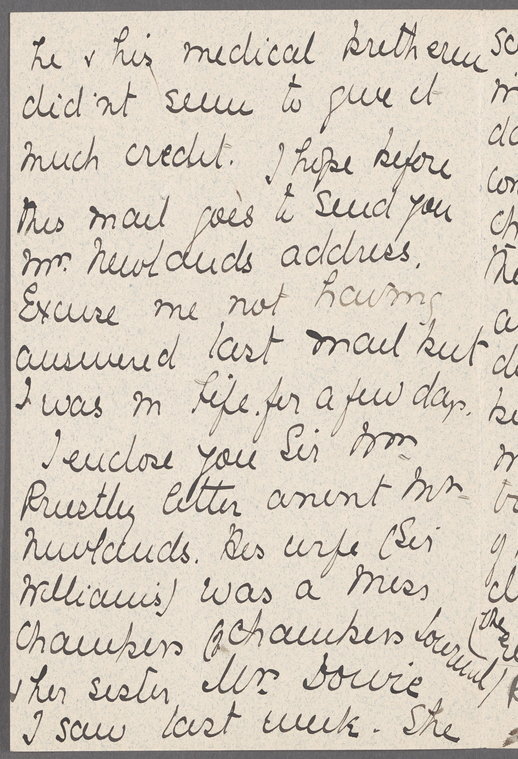 he & his medical bretheren
did'nt seem to give it
much credit. I hope before
this mail goes to send you
Mr. Newlands address.
Excuse me not having
answered last mail but
I was in Fife for a few days.
I enclose you Sir Wm
Priestly letter anent Mr
Newlands. His wife (Sir
Williams) was a Miss
Chambers (of Chambers Journal)
& her sister Mrs. Dowie
I saw last week. She